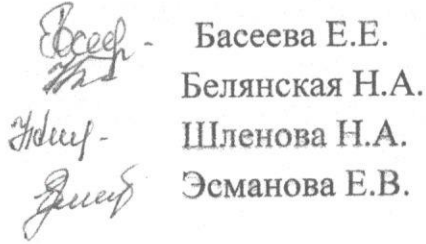 Басеева Е.Е.
Белянская Н.А.
Шленова Н.А.
Эсманова Е.В.